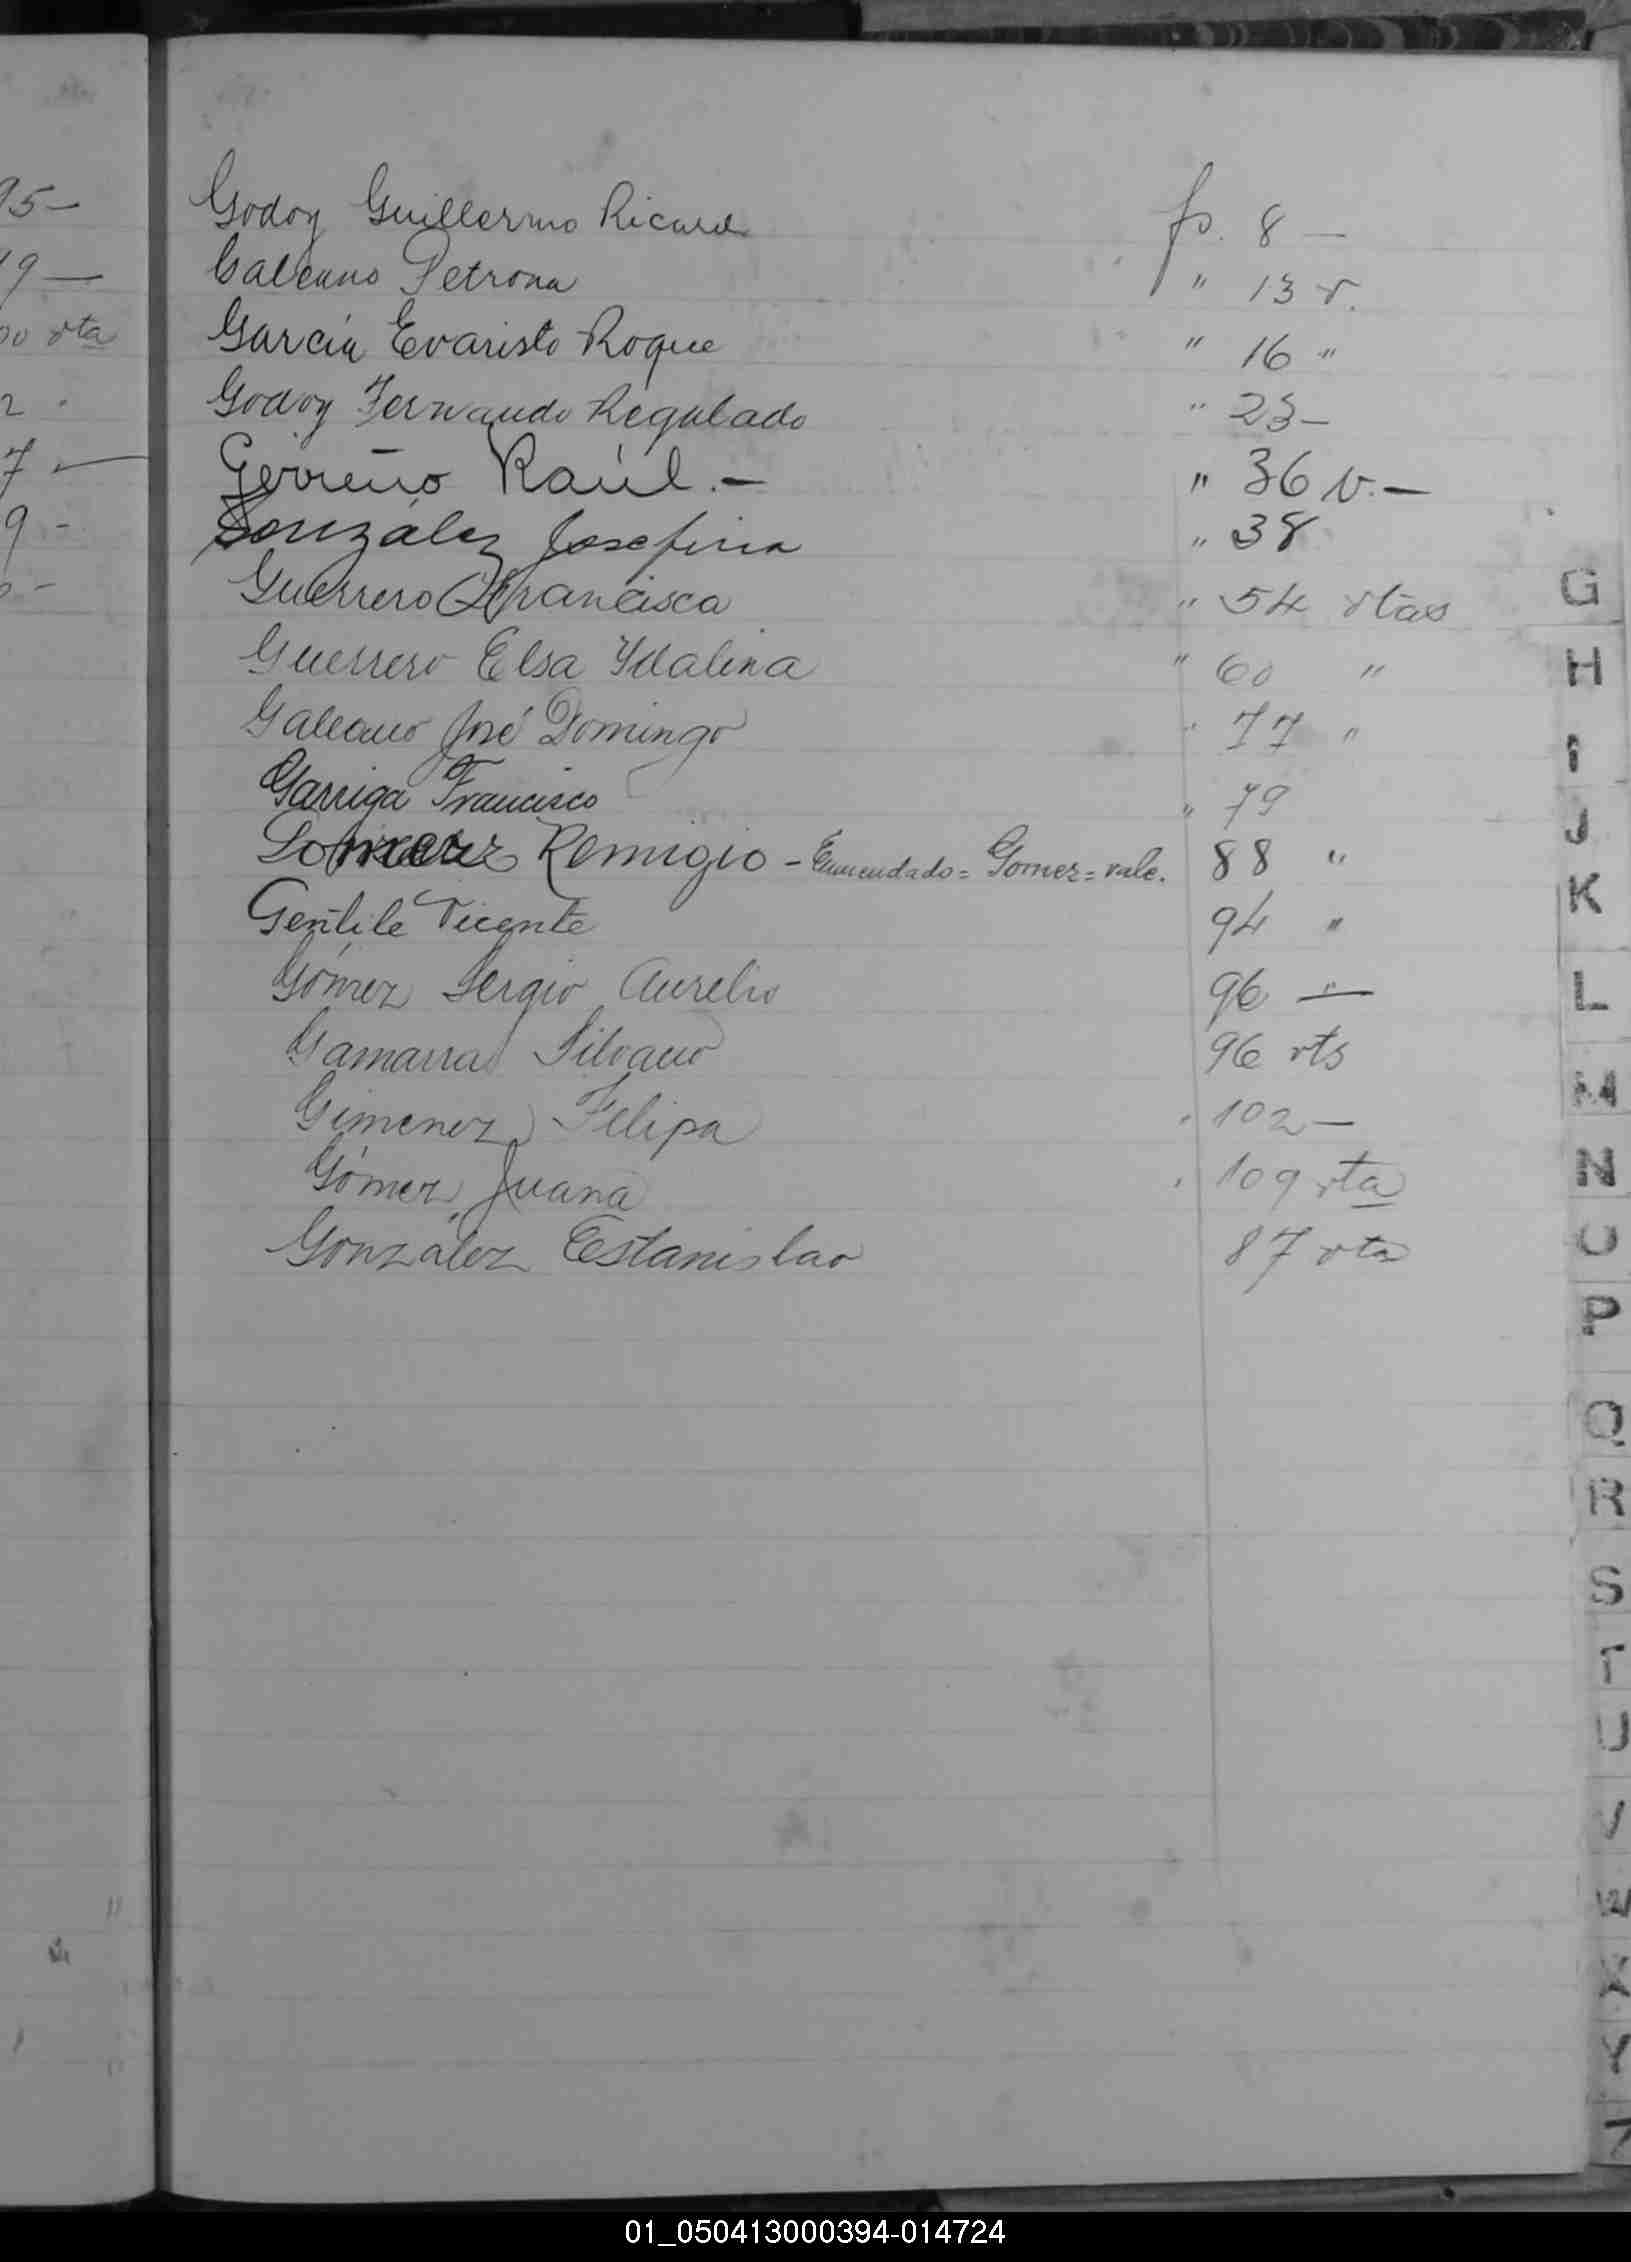 95-
99-
00 vta
2 "
7 -
9 -
Godoy Guillermo Ricard fs. 8 -
Galeano Petrona " 13 v.
García Evaristo Roque " 16 "
Godoy Fernando Regalado " 23-
Gerreño Raúl.- " 36 v.-
González Josefina " 38
Guerrero Francisca " 54 vtas
Guerrero Elsa Ydalina " 60 "
Galeano José Domingo " 77 "
Garriga Francisco " 79
Gomez Remigio - Enmendado = Gomez = vale. 88 "
Gentile Vicente 94 "
Gómez Sergio Aurelio 96 -"-
Gamarra Silvano 96 vts
Gimenez Felipa " 102-
Gómez Juana " 109 vta
González Estanislao 87 vta
G
H
I
J
K
L
M
N
O
P
Q
R
S
T
U
V
W
X
Y
Z
01_050413000394-014724